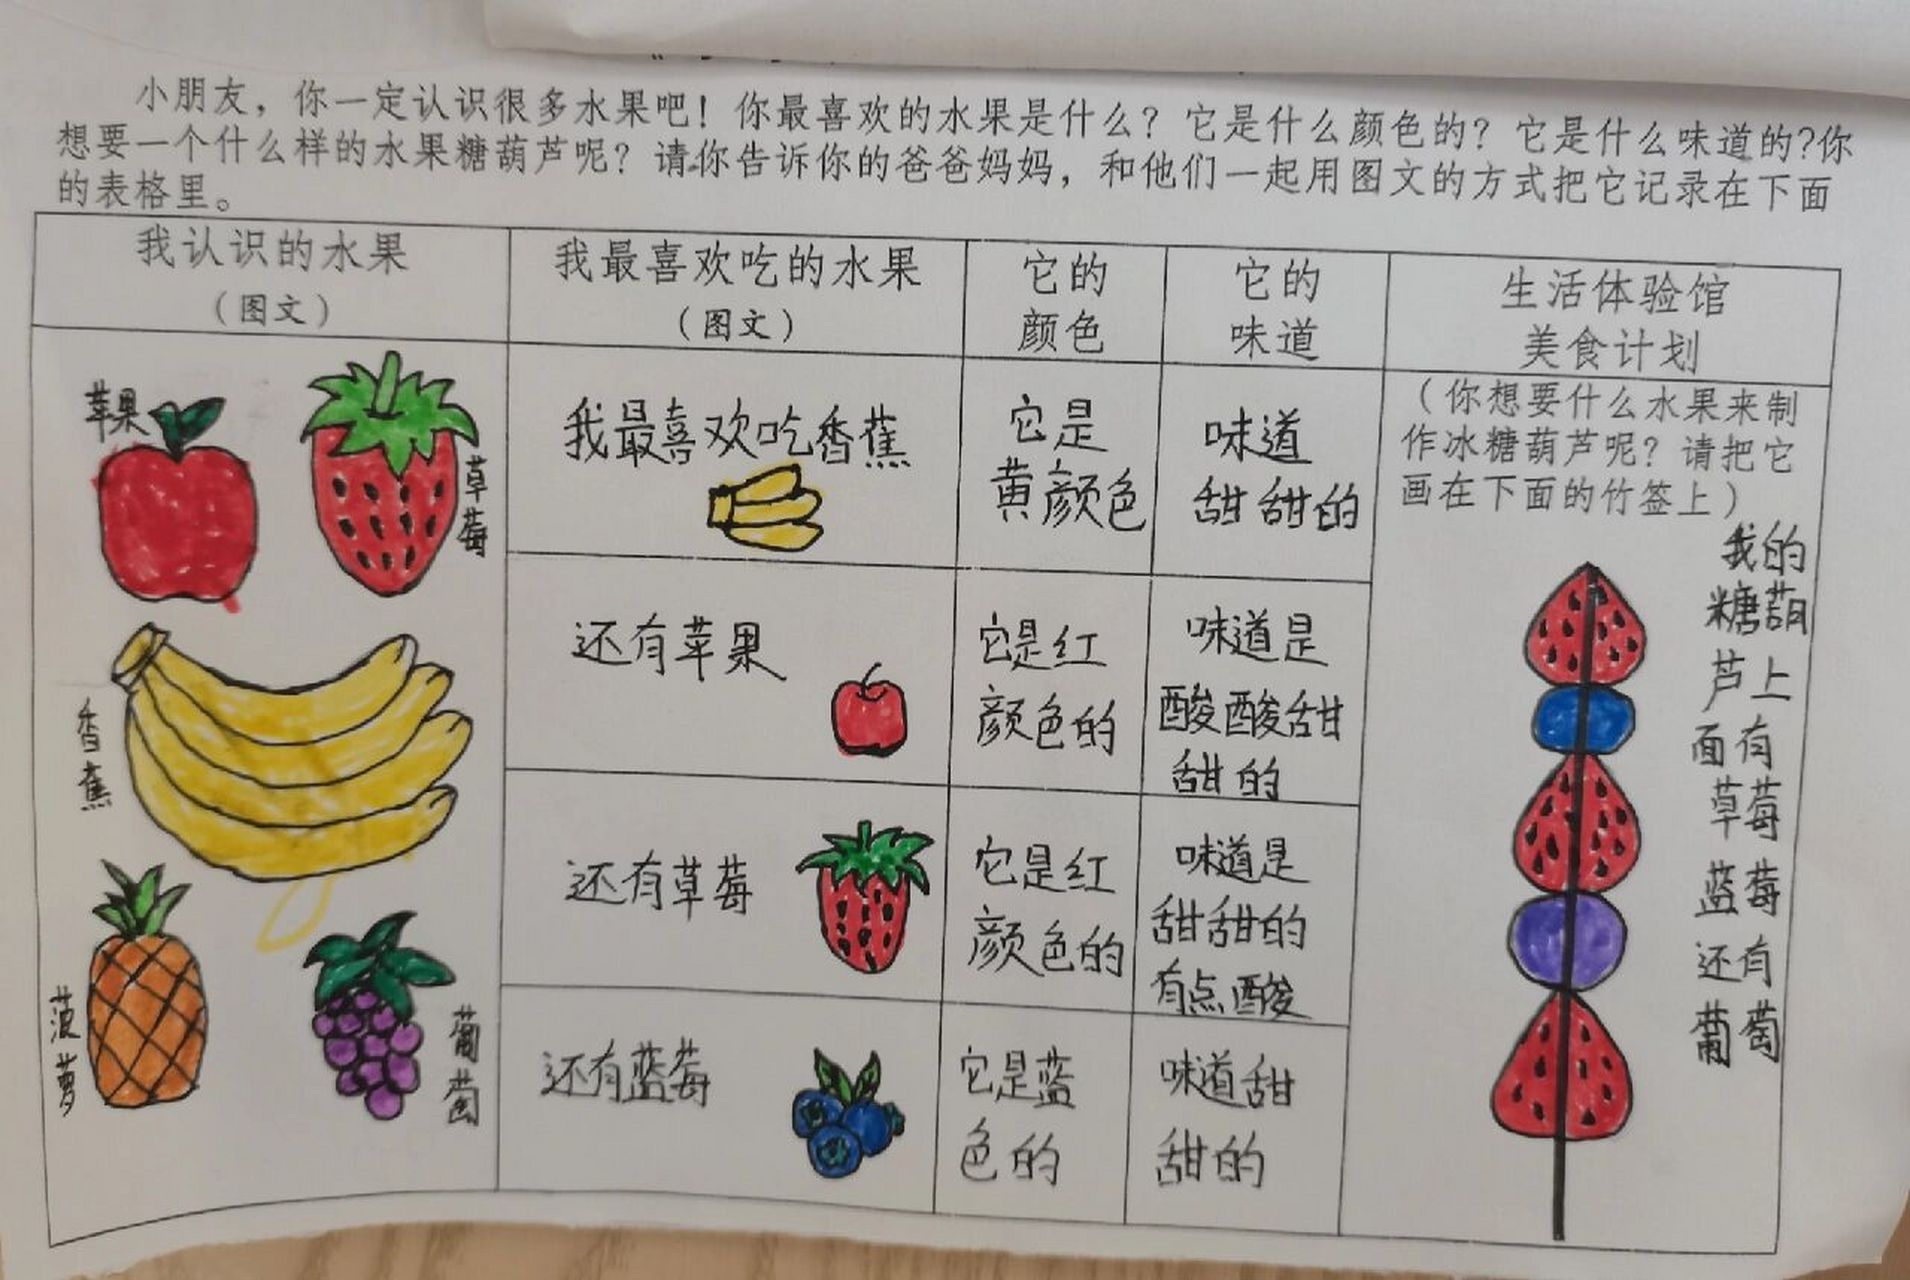 小朋友，你一定认识很多水果吧！你最喜欢的水果是什么？它是什么颜色的？它是什么味道的?你
想要一个什么样的水果糖葫芦呢？请你告诉你的爸爸妈妈，和他们一起用图文的方式把它记录在下面
的表格里。
我认识的水果
（图文）
我最喜欢吃的水果
（图文）
它的
颜色
它的
味道
生活体验馆
美食计划
苹果
草莓
香蕉
菠萝
葡萄
我最喜欢吃香蕉
它是
黄颜色
味道
甜甜的
还有苹果
它是红
颜色的
味道是
酸酸甜
甜的
还有草莓
它是红
颜色的
味道是
甜甜的
有点酸
还有蓝莓
它是蓝
色的
味道甜
甜的
（你想要什么水果来制
作冰糖葫芦呢？请把它
画在下面的竹签上）
我的
糖葫
芦上
面有
草莓
蓝莓
还有
葡萄